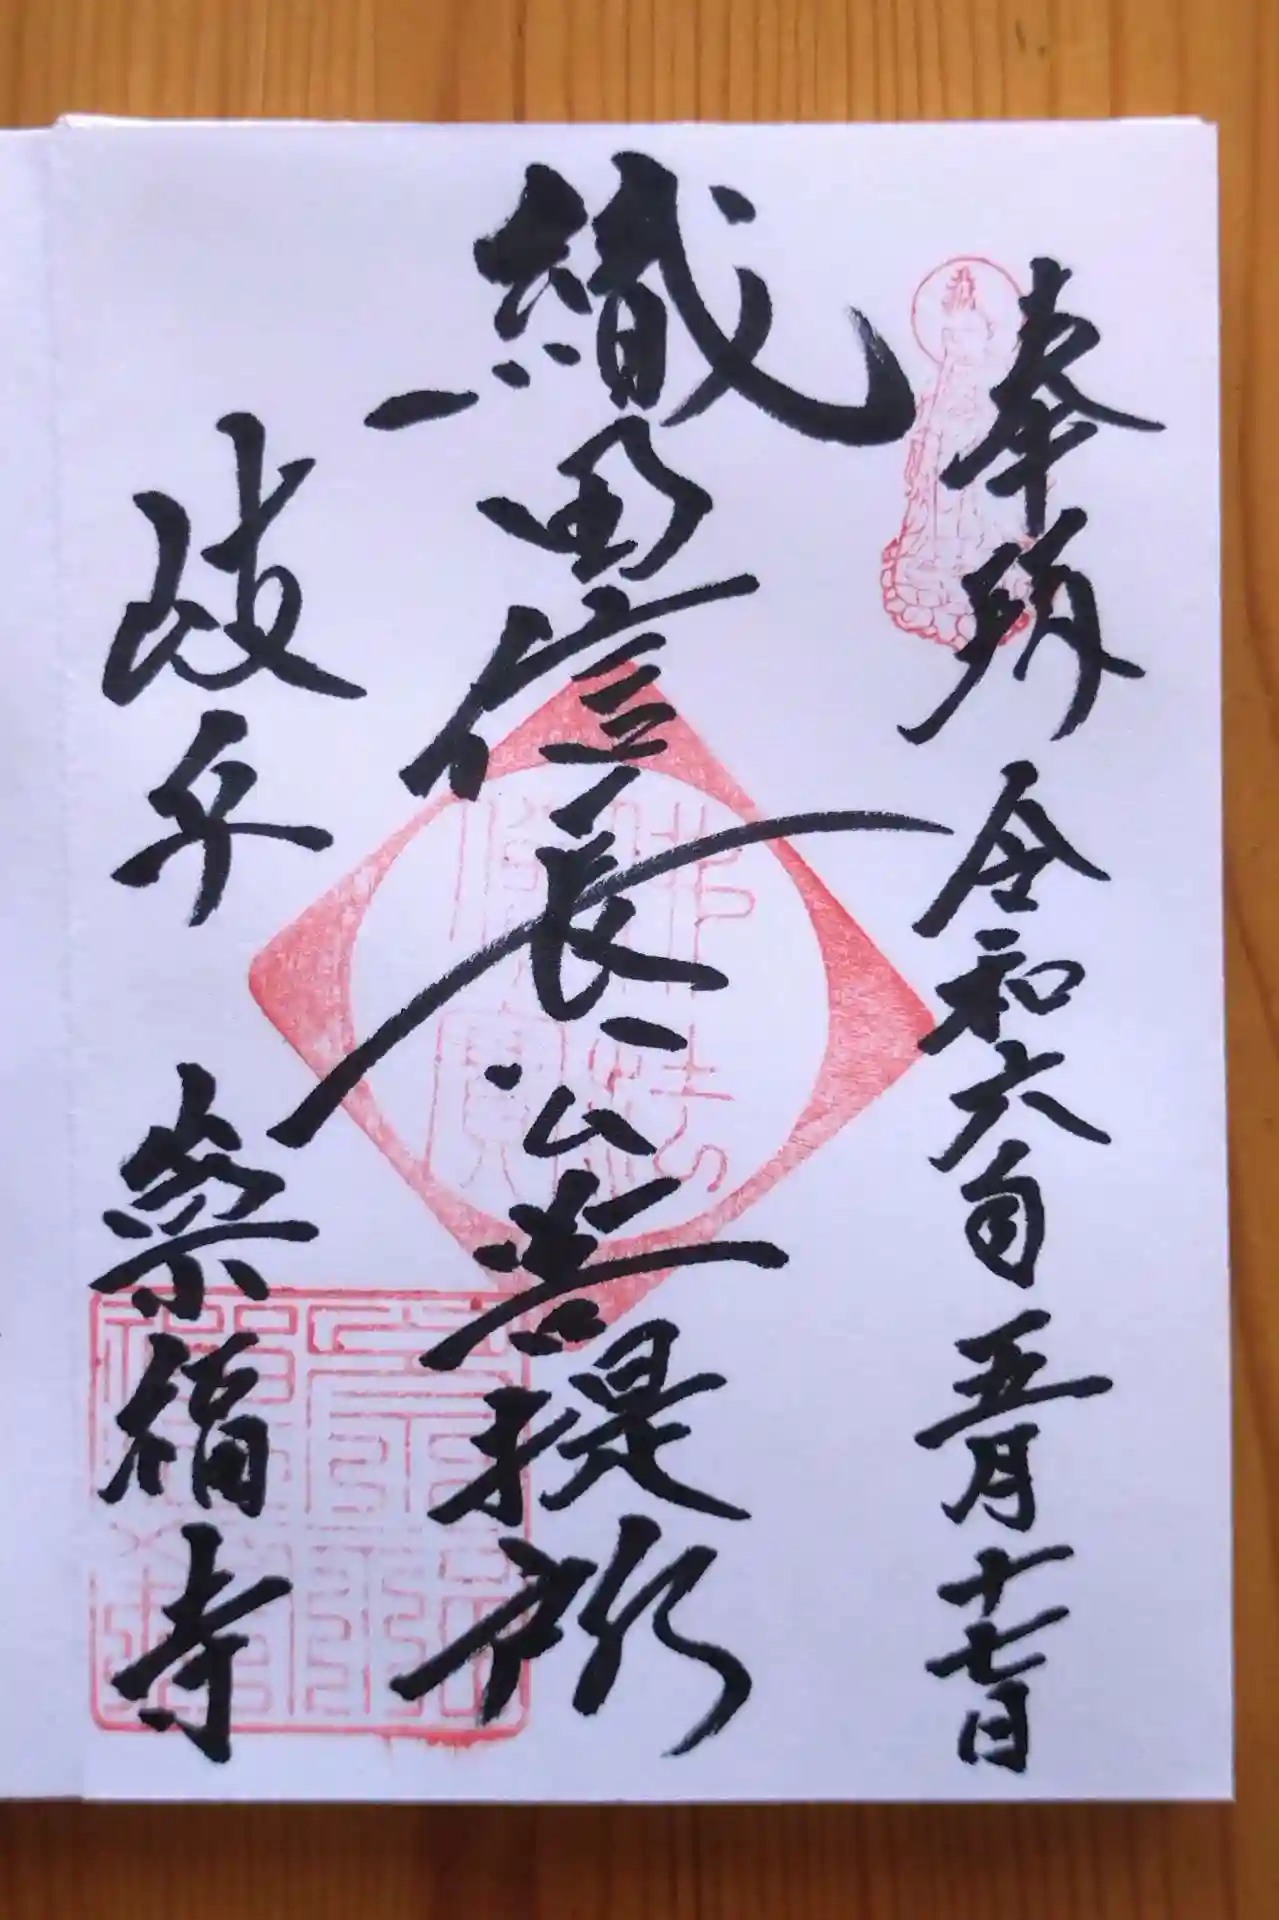 奉拝 令和六年五月十七日
織田信長公菩提所
佛法
僧寶
岐阜 崇福寺